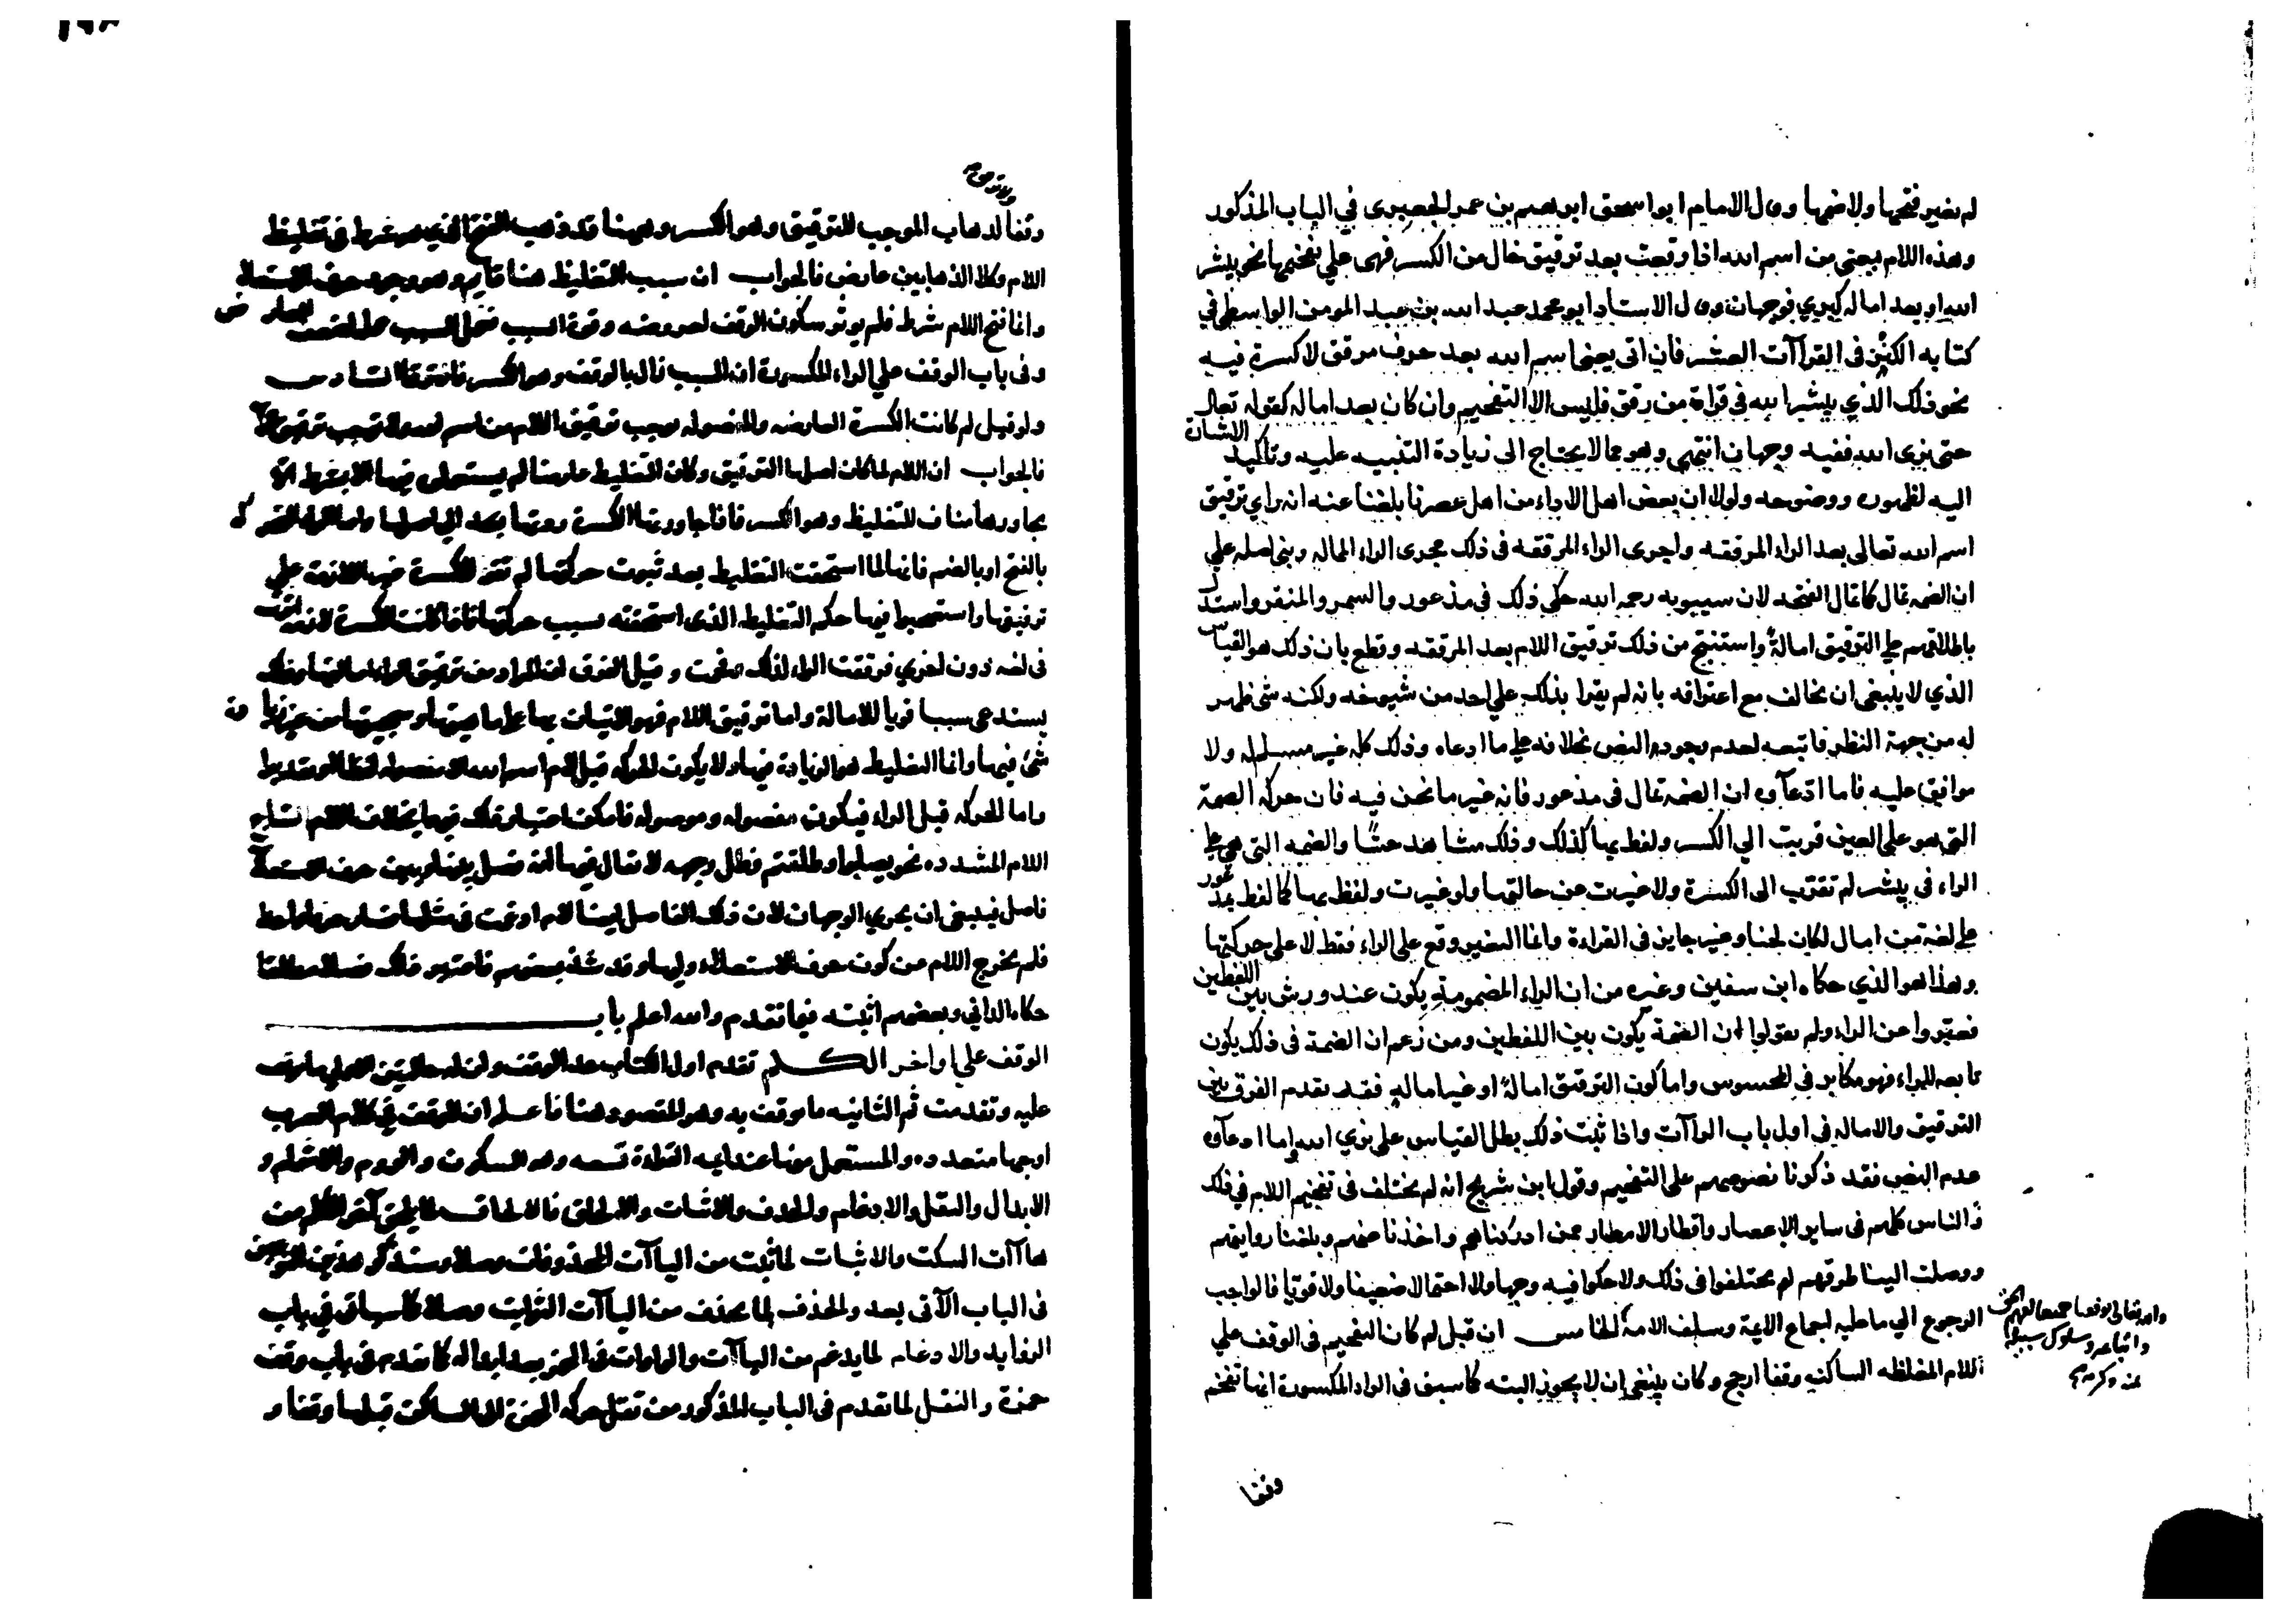 لم يغير فتحها ولا ضمها وقال الامام ابو اسحق ابرهيم بن عمر الجعبري في الباب المذكور
وهذه اللام يعني من اسم الله اذا وقعت بعد ترقيق خال من الكسر فهي على تفخيمها نحو يبشر
الله او بعد امالة كبري فوجهان وقال الاستاد ابو محمد عبد الله بن عبد المومن الواسطي في
كتابه الكنز في القراآت العشر فان اتى يعني اسم الله بعد حرف مرقق لا كسرة فيه
نحو ذلك الذي يبشر الله في قراة من رقق فليس الا التفخيم وان كان بعد امالة كقوله تعالى
حتى نرى الله ففيه وجهان انتهى وهو مما لا يحتاج الى زيادة التنبيه عليه وتاكيد الاشارة
اليه لظهوره ووضوحه ولولا ان بعض اهل الاداء من اهل عصرنا بلغنا عنه انه راي ترقيق
اسم الله تعالى بعد الراء المرققه واجرى الراء المرققه في ذلك مجرى الراء الممالة وبنى اصله علي
ان الضمه تمال كما تمال الفتحه لان سيبويه رحمه الله حكي ذلك في مذعور والسمر والمنقر واستدل
باطلاقهم على الترقيق امالة واستنتج من ذلك ترقيق اللام بعد المرققه وقطع بان ذلك هو القياس
الذي لا ينبغي ان يخالف مع اعترافه بانه لم يقرا بذلك علي احد من شيوخه ولكنه شي ظهر
له من جهة النظر فاتبعه لعدم وجود النص بخلافه على ما ادعاه وذلك كله غير مسلم له ولا
موافق عليه فاما ادعآوه ان الضمة تمال في مذعور فانه غير ما نحن فيه فان حركة الضمة
التي هو على العين قربت الي الكسر ولفظ بها كذلك وذلك مشاهد حسًا والضمه التي هي على
الراء في يبشر لم تقرب الى الكسرة ولا غيرت عن حالتها ولو غيرت ولفظ بها كما لفظ بمذعور
على لغة من امال لكان لحنا وغير جايز في القراءة وانما التغيير وقع على الراء فقط لا على حركتها
وهذا هو الذي حكاه ابن سفين وغيره من ان الراء المضمومة يكون عند ورش بين اللفظين
فعبروا عن الراء ولم يقولوا ان الضمة يكون بين اللفظين ومن زعم ان الضمة في ذلك يكون
تابعه للراء فهو مكابر في المحسوس واما كون الترقيق امالة او غير امالة فقد تقدم الفرق بين
الترقيق والامالة في اول باب الراآت واذا ثبت ذلك بطل القياس على نرى الله واما ادعآوه
عدم النص فقد ذكرنا نصوصهم على التفخيم وقول ابن شريح انه لم يختلف في تفخيم اللام في ذلك
والناس كلهم في ساير الاعصار واقطار الامصار ممن ادركناهم واخذنا عنهم وبلغنا روايتهم
ووصلت الينا طرقهم لم يختلفوا في ذلك ولا حكوا فيه وجها ولا احتمالا ضعيفا ولا قويا فالواجب
الرجوع الي ما عليه اجماع الايمة وسلف الامة الخامس ان قيل لم كان التفخيم في الوقف علي
اللام المغلظه الساكنه وقفا ارجح وكان ينبغي ان لا يجوز البته كما سبق في الراء المكسورة انها تفخم
والله تعالى يوفقنا جميعا لفهم الحق
واتباعه وسلوك سبيله
بمنه وكرمه
وقفا
ولا ترقق
وقفا لذهاب الموجب للترقيق وهو الكسر وههنا قد ذهب الفتح الذي هو شرط في تغليظ
اللام وكلا الذهابين عارض فالجواب ان سبب التغليظ هنا قايم وهو وجود حرف الاستعلا
وانما فتح اللام شرط فلم يوثر سكون الوقف لعروضه وقوة السبب فعمل السبب عمله لضعف المعارض
وفي باب الوقف علي الراء المكسورة ان السبب زال بالوقف وهو الكسر فافترقا السادس
ولو قيل لم كانت الكسرة العارضه والمفصوله توجب ترقيق اللام من اسم الله ولا توجب ترقيق الراء
فالجواب ان اللام لما كان اصلها الترقيق وكان التغليظ عارضا لم يستعملوه فيها الا بشرط ان لا
يجاورها مناف للتغليظ وهو الكسر فاذا جاورتها الكسرة ردتها الي اصلها واما الراء المتحركة
بالفتح او بالضم فانها لما استحقت التغليظ بعد ثبوت حركتها لم تقو الكسرة غير اللازمة علي
ترقيقها واستصحبوا فيها حكم التغليظ الذي استحقته بسبب حركتها فاذا كانت الكسرة لازمة اثرت
في لغه دون اخري فرققت الراء لذلك وفخمت وقيل الفرق ان المراد من ترقيق الراء امالتها وذلك
يستدعى سببا قويا للامالة واما ترقيق اللام فهو الاتيان بها على ماهيتها وسجيتها من غير زيادة
شي فيها وانما التغليظ هو الزيادة فيها ولا يكون الحركه قبل لام اسم الله الا مفصوله لفظا او تقديرا
واما الحركه قبل الراء فيكون مفصوله وموصوله فامكن اعتبار ذلك فيها بخلاف اللام السابع
اللام المشدده نحو يصلبوا وطلقتم وظل وجهه لا يقال فيها انه فصل بينها وبين حرف الاستعلآ
فاصل فينبغي ان يجري الوجهان لان ذلك الفاصل ايضا لام ادغمت في مثلها فصار حرفا واحدا
فلم يخرج اللام من كون حرف الاستعلاء وليها وقد شذ بعضهم فاعتبر ذلك فصلا مطلقا
حكاه الداني وبعضهم اثبته فيما تقدم والله اعلم باب
الوقف علي اواخر الكلم تقدم اول الكتاب حد الوقف وان له حالتين الاولى ما يوقف
عليه وتقدمت ثم الثانيه ما يوقف به وهو المقصود هنا فاعلم ان للوقف في كلام العرب
اوجها متعدده والمستعمل منها عند ايمه القراءة تسعه وهو السكون والروم والاشمام و
الابدال والنقل والادغام والحذف والاثبات والالحاق فالالحاق لما يلحق آخر الكلم من
هاآات السكت والاثبات لما ثبت من الياآت المحذوفات وصلا وسنذكر هذين النوعين
في الباب الآتي بعد والحذف لما يحذف من الياآت الثوابت وصلا كما سياتي في باب
الزوايد والادغام لما يدغم من الياآت والواوات في الهمز بعد ابداله كما تقدم في باب وقف
حمزة والنقل لما تقدم في الباب المذكور من نقل حركة الهمزة الى الساكن قبلها وقفا و